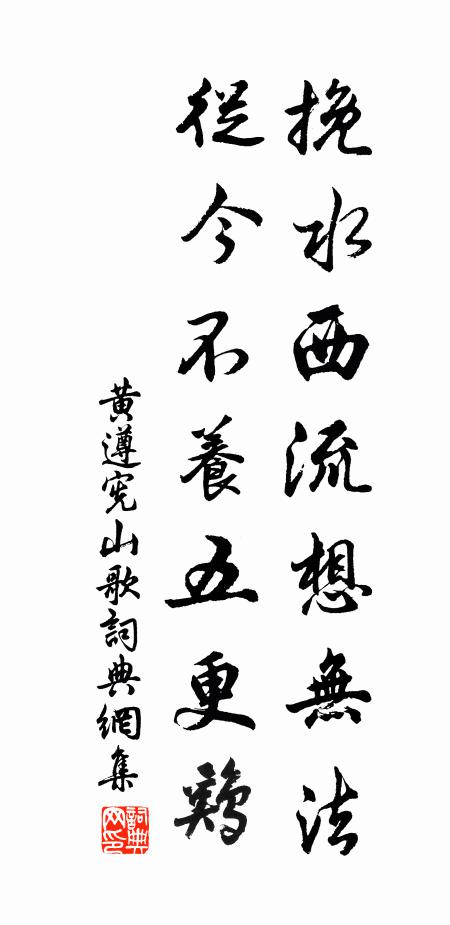 挽水西流想無法
從今不養五更鷄
黃遵宪山歌詞典網集
詞典网印